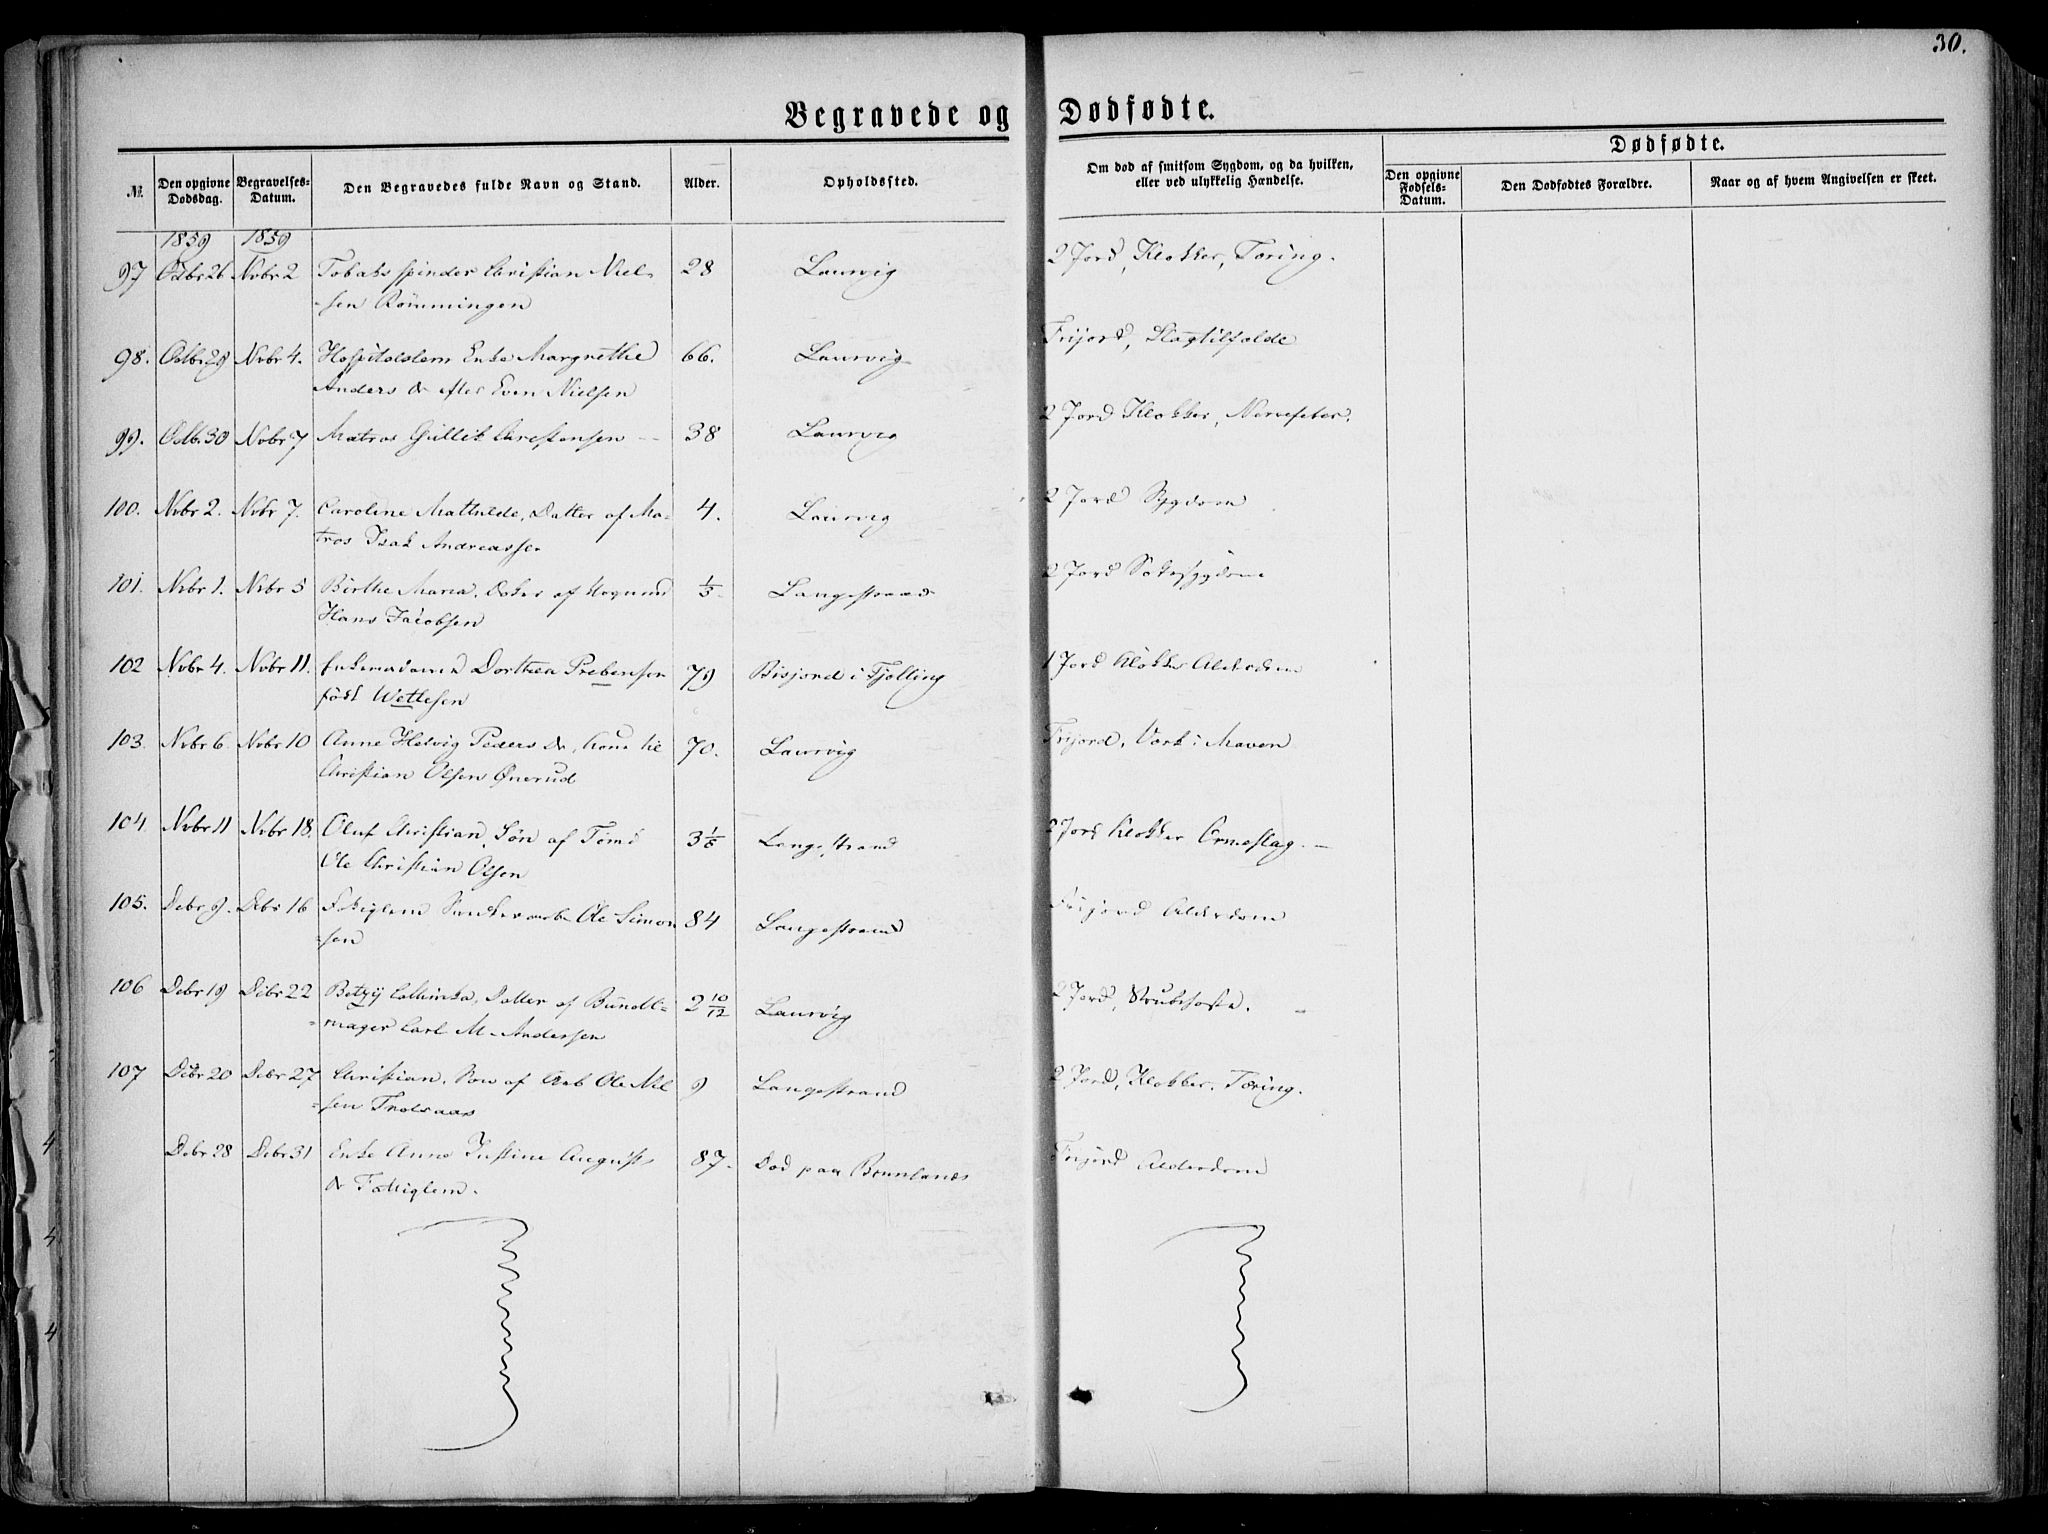 30.
Begravede og Dødfødte.
№ Den opgivne Dødsdag. Begravelses-Datum. Den Begravedes fulde Navn og Stand. Alder. Opholdssted. Om død af smitsom Sygdom, og da hvilken, eller ved ulykkelig Hændelse. Dødfødte.
Den opgivne Fødsels-Datum. Den Dødfødtes Forældre. Naar og af hvem Angivelsen er skeet.
1859 1859
97 Octbr 26 Nvbr 2 Tobaksspinder Christian Niel- 28 Laurvig 2 Jord, Klokker, Tæring.
-sen Römmingen
98. Octbr 29 Nvbr 4. Hospitalslem Enke Margrethe 66. Laurvig Frijord, Slagtilfælde
Anders Dr efter Even Nielsen
99. Octb. 30 Nvbr 7 Matros Gullik Christensen 38 Laurvig 2 Jord Klokker, Nervefeber.
100. Nvbr 2. Nvbr 7. Caroline Mathilde, Datter af Ma- 4. Laurvig 2 Jord Sygdom
tros Isak Andreassen
101. Nvbr 1. Nvbr 5 Birthe Maria, Dotter af 1/5 Langestrand 2 Jord
Hans Jacobsen
102 Nvbr 4. Nvbr 11. Enkemadame Dorthea Prebensen 79 Bisjord i Tjølling 1 Jord Klokker Alderdom
född Wettesen
103. Nvbr 6. Nvbr 10 Anne Helvig Peders Dr, Kone til 70. Laurvig Frijord, Værk i Maven
Christian Olsen Ønerud
104. Nvbr 11 Nvbr 18. Oluf Christian, Sön af Tömd 3 1/6 Langestrand 2 Jord Klokker Ormeslag.
Ole Christian Olsen
105. Debr 9. Debr 16 Fattiglem Ole Simon 84 Langestrand Frijord Alderdom
-sen
106 Debr 19 Debr 22 Betzy Cathinka, Datter af Bundt- 2 10/12 Laurvig 2 Jord, Strubehoste.
-mager Carl M. Andersen
107 Debr 20 Debr 27 Christian, Søn af Arb Ole Niel 9 Langestrand 2 Jord, Klokker, Tæring.
-sen Trolsaas
Debr 28 Debr 31 Enke Anne Justine August 87. Død paa Brunlanes Frijord Alderdom
Dr Fattiglem.